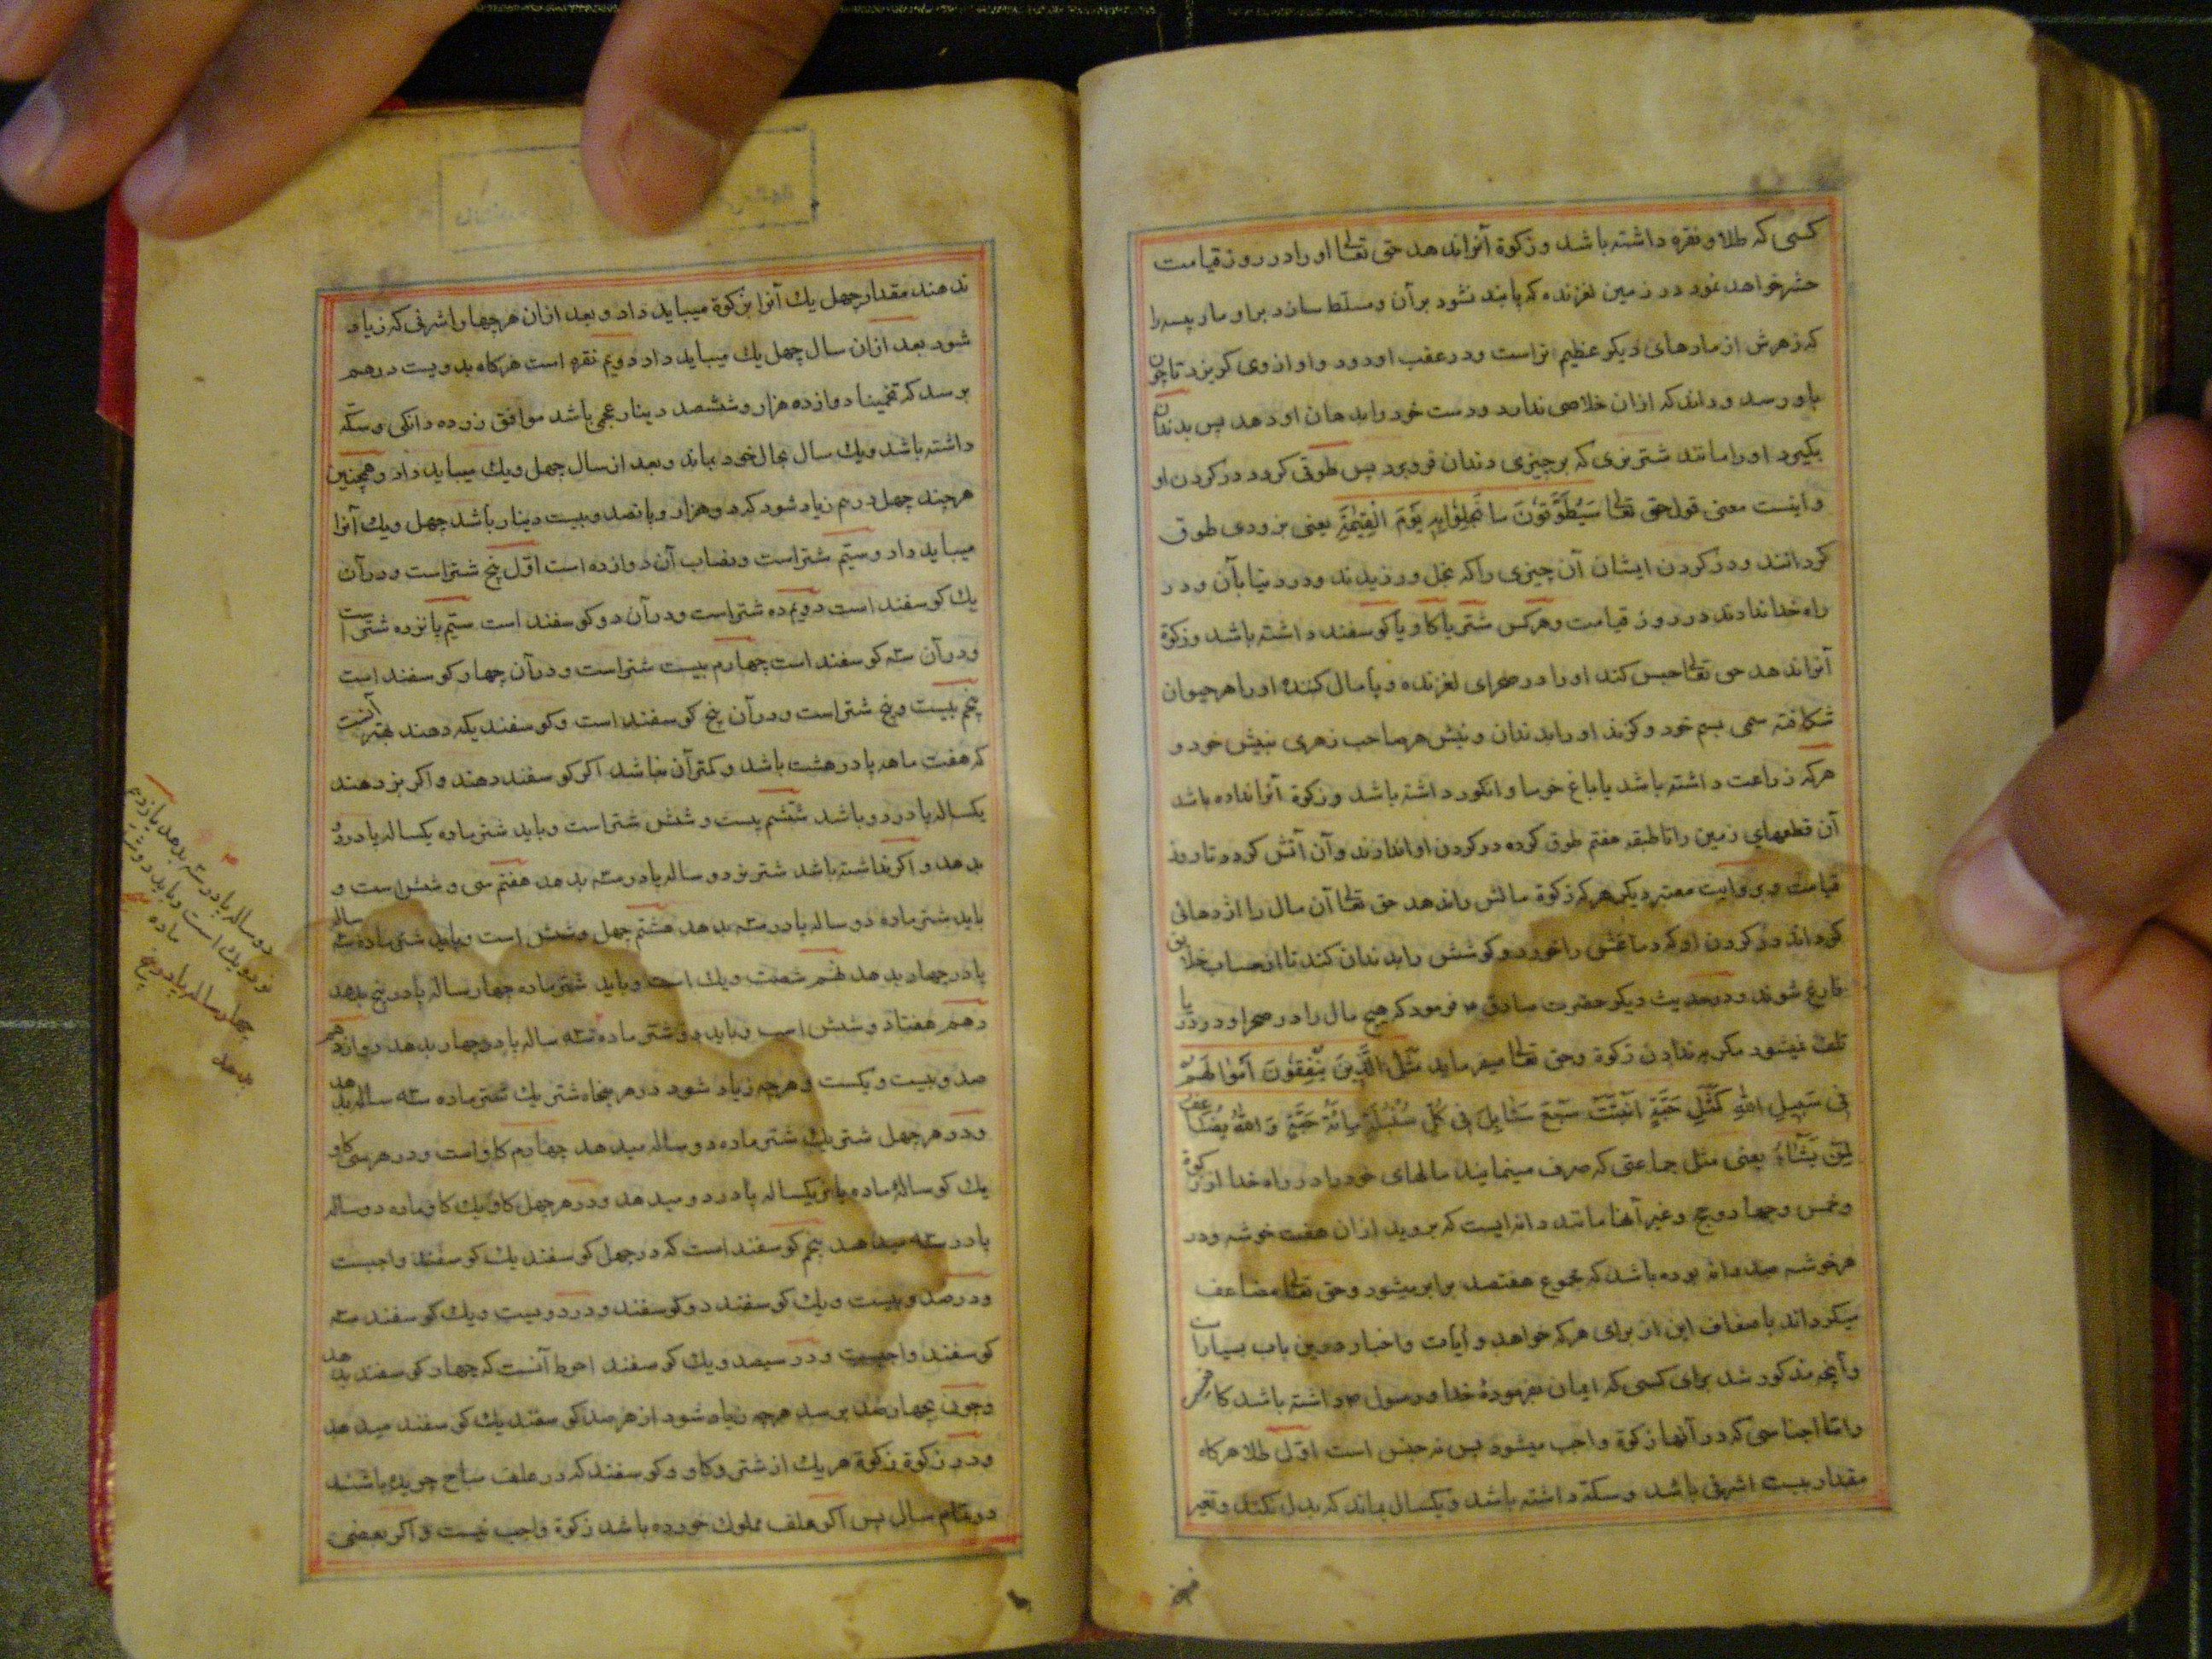 کسی که طلا و نقره داشته باشد و زکوة آنرا ندهد حق تعالی او را در روز قیامت
حشر خواهد نمود در زمین لغزنده که پا بند نشود بر آن و مسلط سازد بر او مار پیسه را
که زهرش از مارهای دیکر عظیم تر است و در عقب او دود و او از وی کریزد تا چون
باو رسد و داند که از آن خلاصی ندارد و دست خود را بدهان او دهد پس بدندان
بکیرد او را مانند شتر نری که بر چیزی دندان فرو برد پس طوقی کردد در کردن او
و اینست معنی قول حق تعالی سَیُطَوَّقُونَ ما بَخِلُوا بِهِ یَوْمَ الْقِیٰمَةِ یعنی بزودی طوق
کردانند در کردن ایشان آن چیزی را که بخل ورزیدند در دنیا بآن و در
راه خدا ندادند در روز قیامت و هر کس شتر یا کاو یا کوسفند داشته باشد و زکوة
آنرا ندهد حق تعالی حبس کند او را در صحرای لغزنده و پامال کند او را هر حیوان
شکافته سمی بسم خود و کزند او را بدندان و نیش هر صاحب زهری بنیش خود و
هر که زراعت داشته باشد یا باغ خرما و انکور داشته باشد و زکوة آنرا نداده باشد
آن قطعهای زمین را تا طبقه هفتم طوق کرده در کردن او اندازند و آن آتش کردد تا روز
قیامت و بروایت معتبر دیکر هر که زکوة مالش را ندهد حق تعالی آن مال را اژدهائی
کرداند در کردن او که دماغش را خورد و کوشش را بدندان کند تا از حساب خلایق
فارغ شوند و در حدیث دیکر حضرت صادق ع فرمود که هیچ مال را در صحرا و در دریا
تلف نمیشود مکر به ندادن زکوة و حق تعالی میفرماید مَثَلُ الَّذِینَ یُنْفِقُونَ اَمْوالَهُمْ
فی سَبِیلِ اللهِ کَمَثَلِ حَبَّةٍ اَنْبَتَتْ سَبْعَ سَنابِلَ فی کُلِّ سُنْبُلَةٍ مِائَةُ حَبَّةٍ وَ اللهُ یُضاعِفُ
لِمَنْ یَشاءُ یعنی مثل جماعتی که صرف مینمایند مالهای خود را در راه خدا از زکوة
و خمس و جهاد و حج و غیر آنها مانند دانه ایست که بروید از آن هفت خوشه و در
هر خوشه صد دانه بوده باشد که مجموع هفتصد برابر میشود و حق تعالی مضاعف
میکرداند باضعاف این از برای هر که خواهد و آیات و اخبار در این باب بسیار است
و آنچه مذکور شد برای کسی که ایمان بفرمودۀ خدا و رسول ص داشته باشد کافیست
و امّا اجناسی که در آنها زکوة واجب میشود پس نه جنس است اوّل طلا هر کاه
مقدار بیست اشرفی باشد و سکّه داشته باشد و یکسال بماند که بدل نکند و تغیر
ندهند مقدار چهل یك آنرا بزکوة میباید داد و بعد از آن هر چهار اشرفی که زیاد
شود بعد از آن سال چهل یك میباید داد دویم نقره است هر کاه بدویست درهم
برسد که تخمینا دوازده هزار و ششصد دینار عجمی باشد موافق زر ده دانکی و سکّه
داشته باشد و یك سال بحال خود بماند و بعد از سال چهل و یك میباید داد و همچنین
هر چند چهل درم زیاد شود که دو هزار و پانصد و بیست دینار باشد چهل و یك آنرا
میباید داد و سیّم شتر است و نصاب آن دوازده است اوّل پنج شتر است و در آن
یك کوسفند است دویم ده شتر است و در آن دو کوسفند است سیّم پانزده شتر است
و در آن سه کوسفند است چهارم بیست شتر است و در آن چهار کوسفند است
پنجم بیست و پنج شتر است و در آن پنج کوسفند است و کوسفندیکه دهند بهتر آنست
که هفت ماهه پا در هشت باشد و کمتر آن نباشد اکر کوسفند دهند و اکر بز دهند
یکساله پا در دو باشد ششم بیست و شش شتر است و باید شتر ماده یکساله پا در دو
بدهد و اکر نداشته باشد شتر نر دو ساله پا در سه بدهد هفتم سی و شش است و
باید شتر ماده دو ساله پا در سه بدهد هشتم چهل و شش است و باید شتر ماده سه ساله
پا در چهار بدهد نهم شصت و یك است و باید شتر ماده چهار ساله پا در پنج بدهد
دهم هفتاد و شش است و باید دو شتر ماده سه ساله پا در چهار بدهد دوازدهم
صد و بیست و یکست و هر چه زیاد شود در هر پنجاه شتر یك شتر ماده سه ساله بدهد
و در هر چهل شتر یك شتر ماده دو ساله میدهد چهارم کاو است و در هر سی کاو
یك کوسالۀ ماده یا نر یکساله پا در دو میدهد و در هر چهل کاو یك کاو ماده دو ساله
پا در سه میدهد پنجم کوسفند است که در چهل کوسفند یك کوسفند واجبست
و در صد و بیست و یك کوسفند دو کوسفند و در دویست و یك کوسفند سه
کوسفند واجبست و در سیصد و یك کوسفند احوط آنست که چهار کوسفند بدهد
و چون بچهارصد برسد هر چه زیاد شود از هر صد کوسفند یك کوسفند میدهد
و در زکوة هر یك از شتر و کاو و کوسفند که در علف مباح چریده باشند
در تمام سال پس اکر علف مملوك خورده باشد زکوة واجب نیست و اکر بعضی
دو ساله پا در سه بدهد یازدهم
نود و یك است و باید دو شتر
ماده
چهار ساله پا در پنج
بدهد